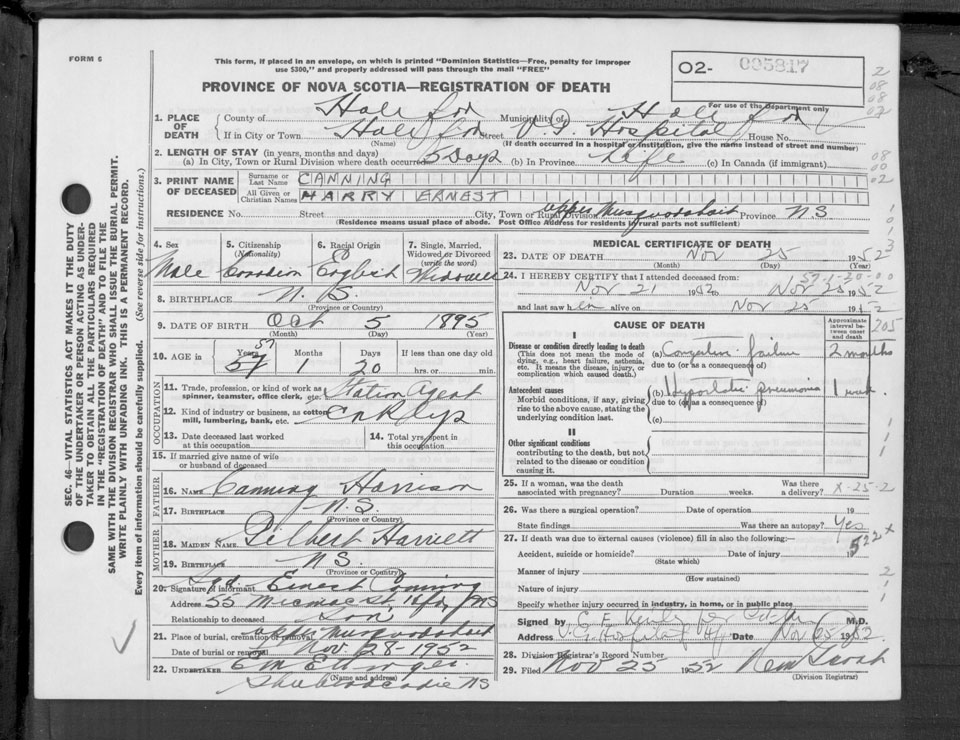 FORM 6
This form, if placed in an envelope, on which is printed "Dominion Statistics—Free, penalty for improper
use $300," and properly addressed will pass through the mail "FREE"
PROVINCE OF NOVA SCOTIA—REGISTRATION OF DEATH
02- 005817
For use of the Department only
1. PLACE OF DEATH County of Halifax Municipality of Halifax
If in City or Town Halifax Street V.G. Hospital House No.
(Name) (If death occurred in a hospital or institution, give the name instead of street and number)
2. LENGTH OF STAY (in years, months and days)
(a) In City, Town or Rural Division where death occurred 5 Days (b) In Province Life (c) In Canada (if immigrant)
3. PRINT NAME OF DECEASED Surname or Last Name CANNING
All Given or Christian Names HARRY ERNEST
RESIDENCE No. Street City, Town or Rural Division Upper Musquodoboit Province NS
(Residence means usual place of abode. Post Office Address for residents in rural parts not sufficient)
4. Sex Male
5. Citizenship (Nationality) Canadian
6. Racial Origin English
7. Single, Married, Widowed or Divorced (write the word) Widower
8. BIRTHPLACE N.S.
(Province or Country)
9. DATE OF BIRTH Oct 5 1895
(Month) (Day) (Year)
10. AGE in Years 57 57 Months 1 Days 20 If less than one day old
hrs. or min.
OCCUPATION
11. Trade, profession, or kind of work as spinner, teamster, office clerk, etc. Station Agent
12. Kind of industry or business, as cotton mill, lumbering, bank, etc. C N Rlys
13. Date deceased last worked at this occupation
14. Total yrs. spent in this occupation
15. If married give name of wife or husband of deceased
FATHER
16. NAME Canning Harrison
17. BIRTHPLACE N.S.
(Province or Country)
MOTHER
18. MAIDEN NAME Gilbert Harriett
19. BIRTHPLACE NS
(Province or Country)
20. Signature of informant Sgd. Ernest Canning
Address 55 Micmac St, Hfx NS
Relationship to deceased Son
21. Place of burial, cremation or removal Upper Musquodoboit
Date of burial or removal Nov. 28-1952
22. UNDERTAKER E M Ettinger
(Name and address)
Shubenacadie NS
MEDICAL CERTIFICATE OF DEATH
23. DATE OF DEATH Nov 25 1952
(Month) (Day) (Year)
24. I HEREBY CERTIFY that I attended deceased from:
Nov 21 1952 to Nov 25 1952
and last saw h im alive on Nov 25 1952
CAUSE OF DEATH
Approximate interval between onset and death
I
Disease or condition directly leading to death
(This does not mean the mode of dying, e.g., heart failure, asthenia, etc. It means the disease, injury, or complication which caused death.)
(a) Congestive failure 2 months
due to (or as a consequence of)
Antecedent causes
Morbid conditions, if any, giving rise to the above cause, stating the underlying condition last.
(b) Hypostatic pneumonia 1 week
due to (or as a consequence of)
(c)
II
Other significant conditions
contributing to the death, but not related to the disease or condition causing it.
25. If a woman, was the death associated with pregnancy? Duration weeks. Was there a delivery? X-25-2
26. Was there a surgical operation? Date of operation 19
State findings Was there an autopsy? Yes
27. If death was due to external causes (violence) fill in also the following:—
Accident, suicide or homicide? Date of injury 19
(State which)
Manner of injury
(How sustained)
Nature of injury
Specify whether injury occurred in industry, in home, or in public place
Signed by M.D.
Address V.G. Hospital Hfx Date Nov 25 1952
28. Division Registrar's Record Number
29. Filed Nov 25 1952
(Division Registrar)
SEC. 46—VITAL STATISTICS ACT MAKES IT THE DUTY
OF THE UNDERTAKER OR PERSON ACTING AS UNDER-
TAKER TO OBTAIN ALL THE PARTICULARS REQUIRED
IN THE "REGISTRATION OF DEATH" AND TO FILE THE
SAME WITH THE DIVISION REGISTRAR WHO SHALL ISSUE THE BURIAL PERMIT.
WRITE PLAINLY WITH UNFADING INK. THIS IS A PERMANENT RECORD.
Every item of information should be carefully supplied. (See reverse side for instructions.)